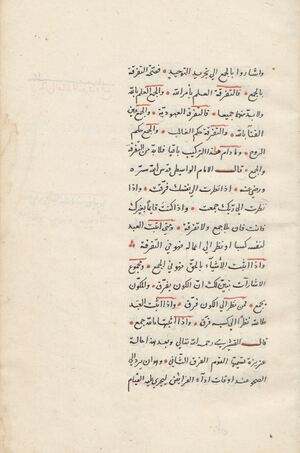 واشاروا بالجمع الى تجريد التوحيد فصحتى التفرقة
بالجمع فالتفرقة العلم بأمر الله والجمع العلم بالله
ولا بد منهما جميعا فالتفرقة العبودية والجمع
الفنا بالله والتفرقة حكم القالب والجمع حكم
الروح وما دام هذا التركيب باقيا فلا بد من التفرقة
والجمع قال الامام الواسطى قدس الله سره
ورضى عنه اذا نظرت الى نفسك فرقت واذا
نظرت الى ربك جمعت واذا كنت قائما بغيرك
فانت فان بلا جمع ولا تفرقة ومتى اثبت العبد
لنفسه كسبا او نظر الى اعماله فهو فى التفرقة
واذا اثبت الأشياء بالحق فهو فى الجمع ومجموع
الاشارات ينبئك ان الكون يفرق والمكون
يجمع فمن نظر الى الكون فرق واذا اثبت العبد
طاعته نظرا الى كسبه فرق واذا اثبتها بالله جمع
قال القشيرى رحمه الله تعالى وبعد هذا حالة
عزيزة يسميها القوم الفرق الثانى وهو ان يرد الى
الصحو عند اوقات اداء الفرايض ليجرى عليه القيام